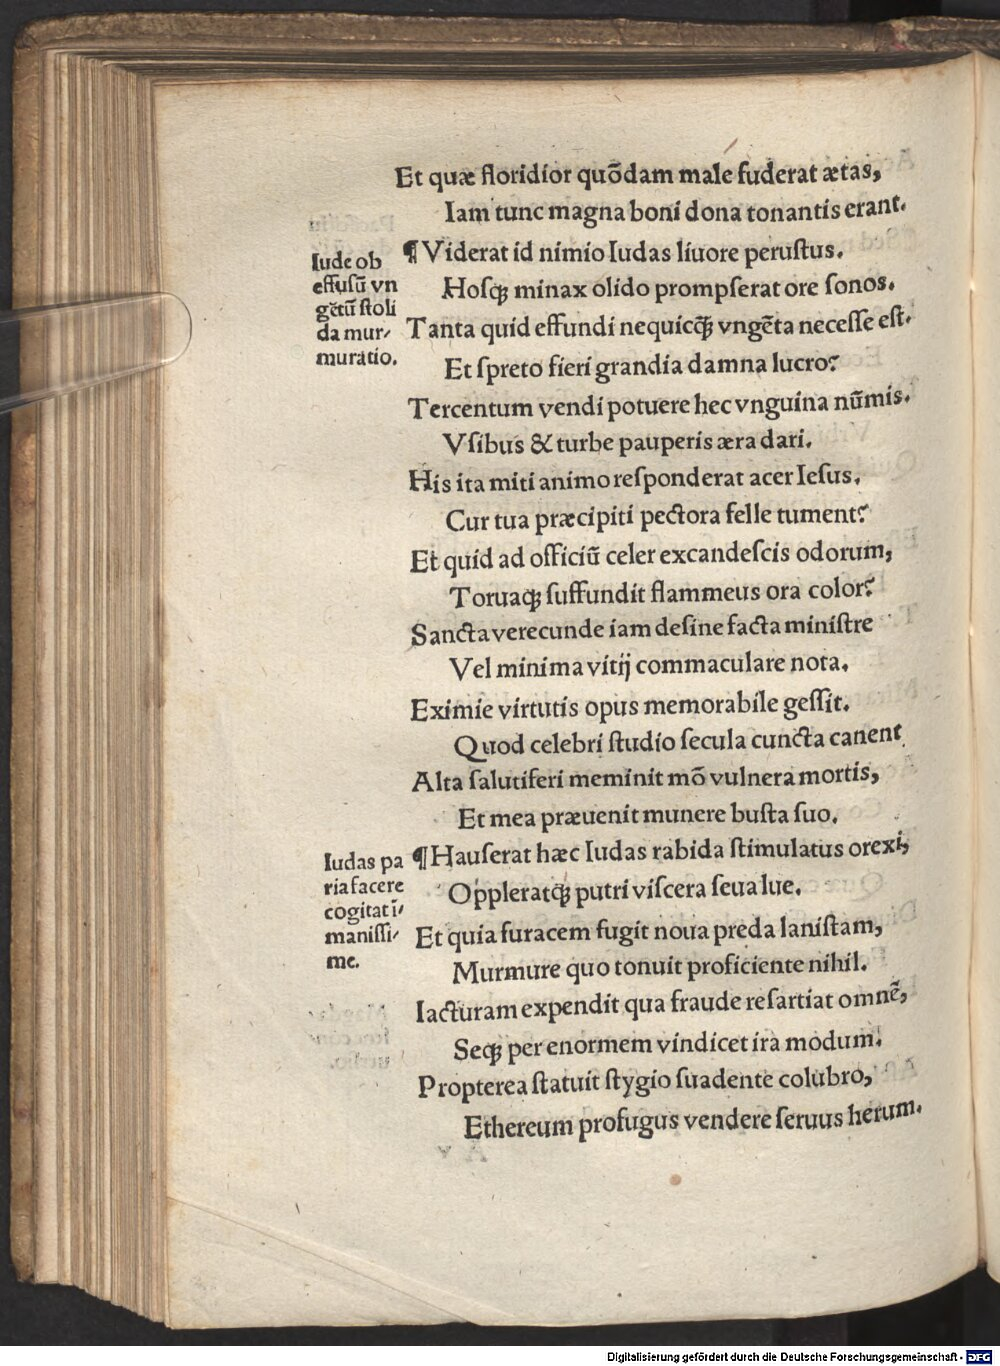 Et quæ floridior quōdam male fuderat ætas,
Iam tunc magna boni dona tonantis erant.
¶ Viderat id nimio Iudas liuore perustus.
Hosqꝫ minax olido prompserat ore sonos.
Tanta quid effundi nequicq̄ꝫ vngēta necesse est.
Et spreto fieri grandia damna lucro?
Tercentum vendi potuere hec vnguina nūmis.
Vsibus & turbe pauperis æra dari.
His ita miti animo responderat acer Iesus.
Cur tua præcipiti pectora felle tument?
Et quid ad officiū celer excandescis odorum,
Toruaqꝫ suffundit flammeus ora color?
Sancta verecunde iam desine facta ministre
Vel minima vitij commaculare nota.
Eximie virtutis opus memorabile gessit.
Quod celebri studio secula cuncta canent.
Alta salutiferi meminit mō vulnera mortis,
Et mea præuenit munere busta suo.
¶ Hauserat hæc Iudas rabida stimulatus orexi,
Oppleratqꝫ putri viscera seua lue.
Et quia furacem fugit noua preda lanistam,
Murmure quo tonuit proficiente nihil.
Iacturam expendit qua fraude resartiat omnē,
Seqꝫ per enormem vindicet ira modum.
Propterea statuit stygio suadente colubro,
Ethereum profugus vendere seruus herum.
Iude ob
effusū vn
gētū stoli
da mur-
muratio.
Iudas pa
ria facere
cogitat ī-
manissi-
me.
Digitalisierung gefördert durch die Deutsche Forschungsgemeinschaft - DFG